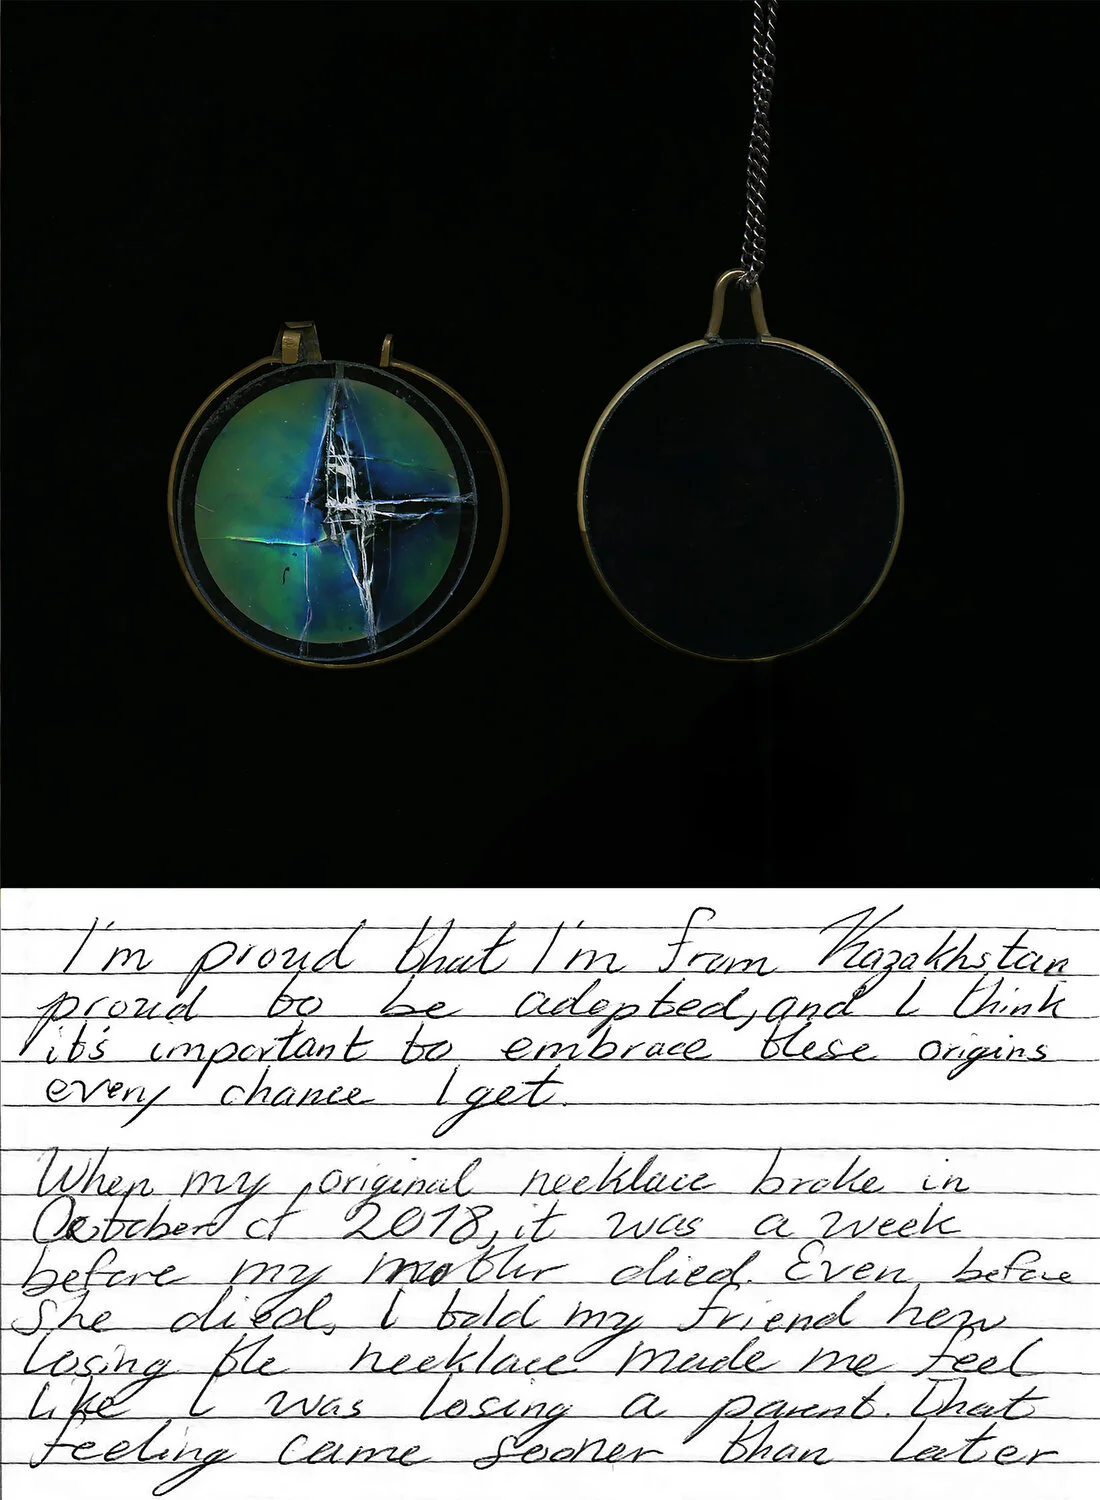 I'm proud that I'm from Kazakhstan
proud to be adopted, and I think
it's important to embrace these origins
every chance I get.
When my original necklace broke in
October of 2018, it was a week
before my mother died. Even before
she died, I told my friend how
losing the necklace made me feel
like I was losing a parent. That
feeling came sooner than later